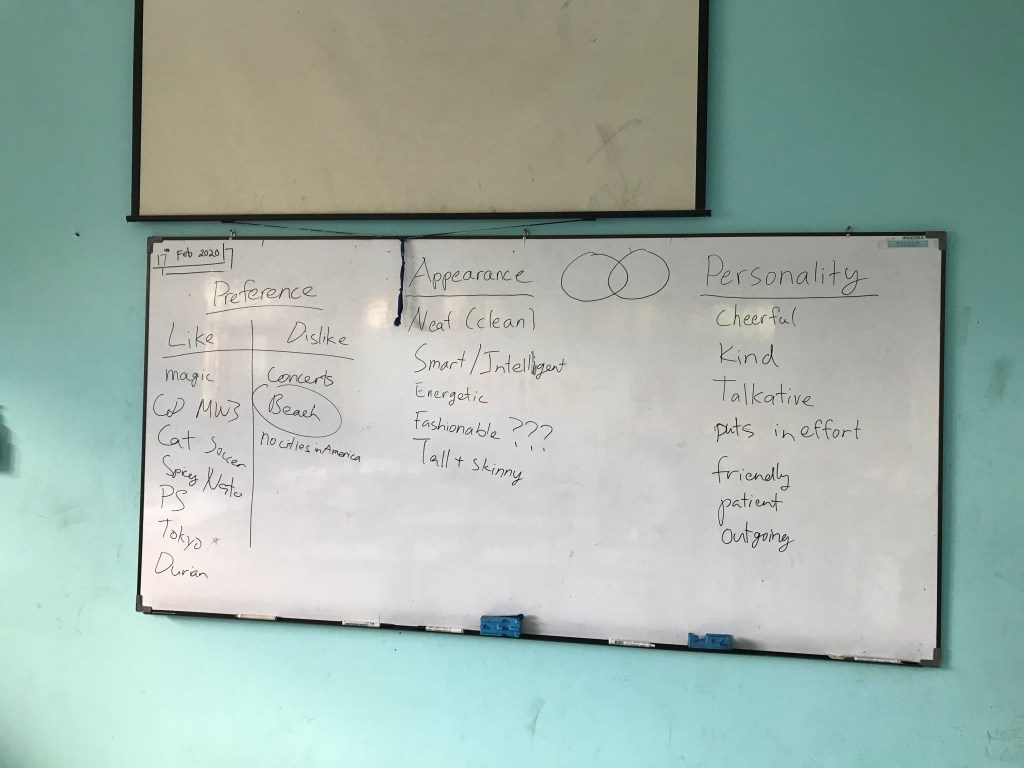 17th Feb 2020
Preference
Like
Dislike
magic
CoD MW3
Cat Soccer
Spicy Nato
PS
Tokyo
Durian
Concerts
Beach
no cities in America
Appearance
Neat (clean)
Smart/Intelligent
Energetic
Fashionable ???
Tall + skinny
Personality
Cheerful
Kind
Talkative
puts in effort
friendly
patient
Outgoing